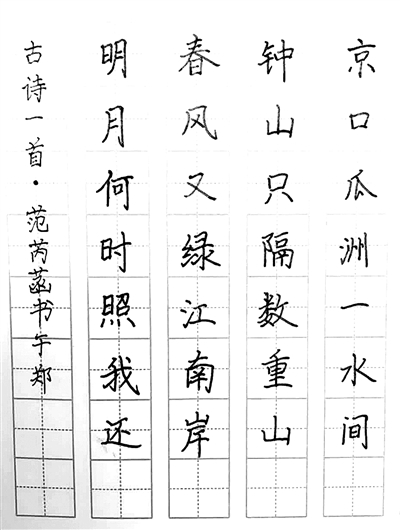 京口瓜洲一水间
钟山只隔数重山
春风又绿江南岸
明月何时照我还
古诗一首·范芮菡书于郑